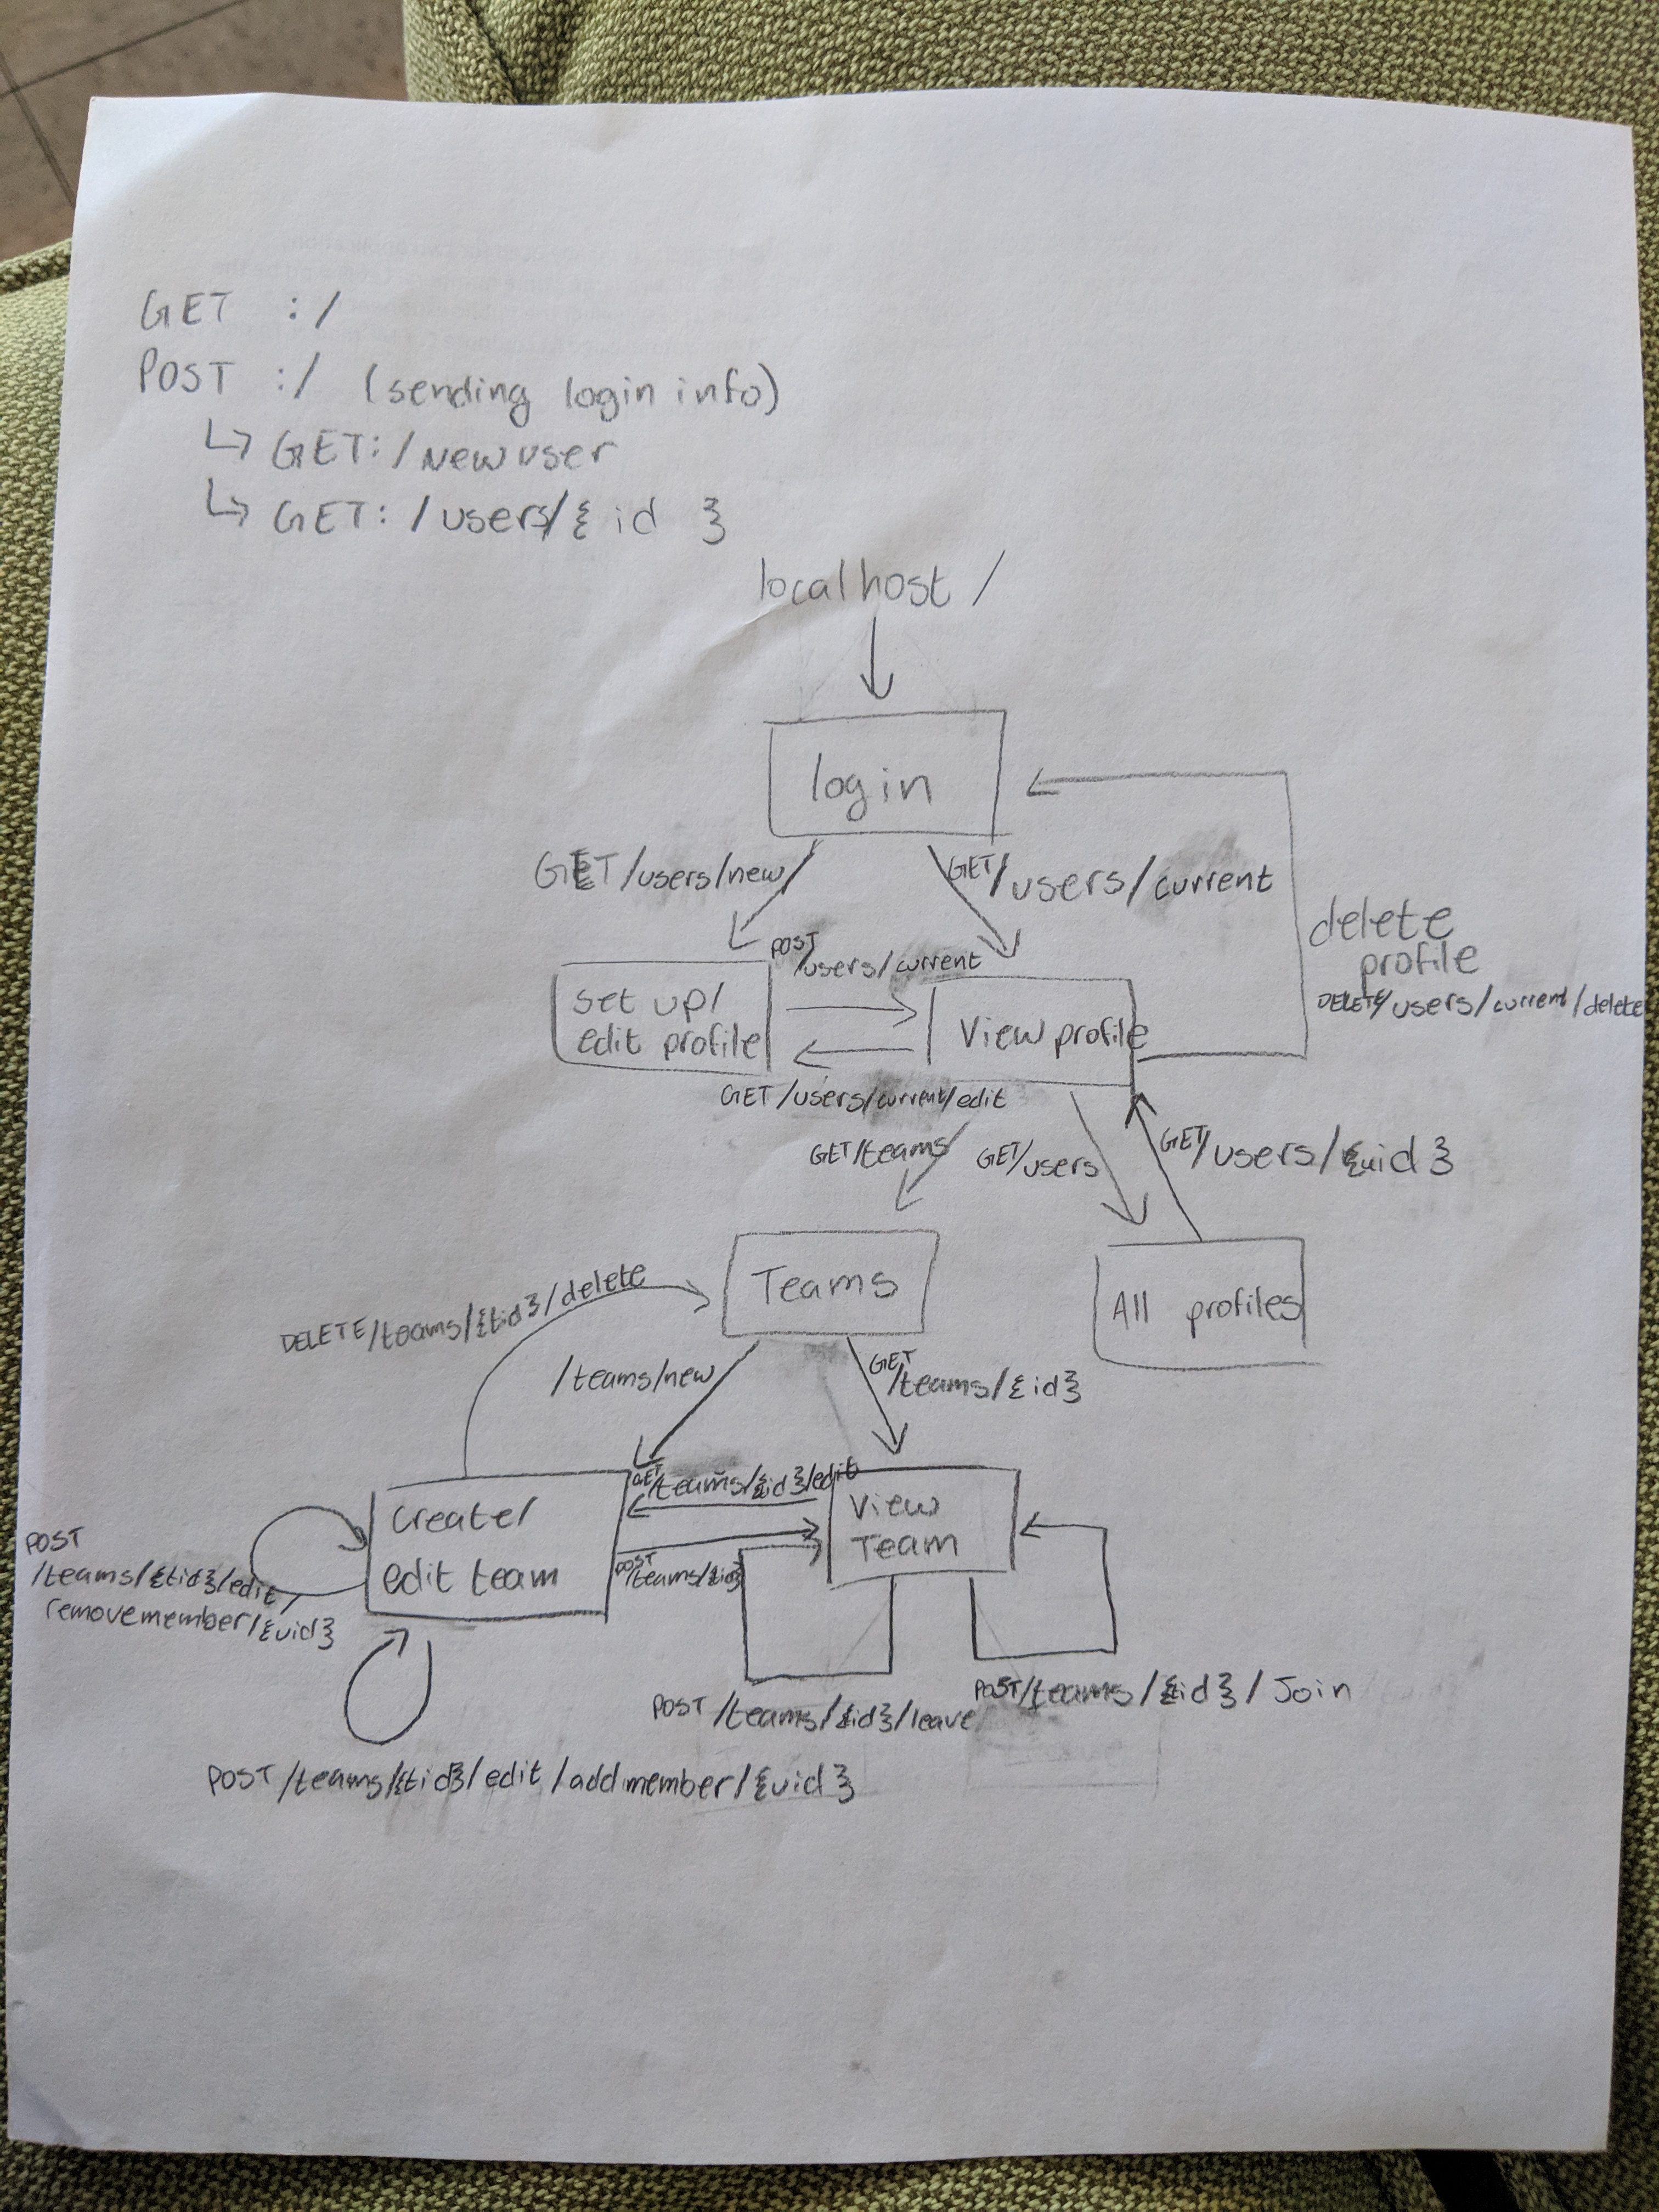 GET :/
POST :/ (sending login info)
↳ GET: /newuser
↳ GET: /users/{id }
localhost /
login
GET /users/new/
GET/users/current
delete
profile
DELETE/users/current/delete
POST
/users/current
set up/
edit profile
View profile
GET /users/current/edit
GET/teams
GET/users
GET/users/{uid}
Teams
All profiles
DELETE/teams/{tid}/delete
/teams/new
GET
/teams/{id}
GET
/teams/{id}/edit
create/
edit team
View
Team
POST
/teams/{id}
POST
/teams/{tid}/edit/
removemember/{uid}
POST /teams/{id}/leave
POST/teams/{id}/Join
POST /teams/{tid}/edit/addmember/{uid}